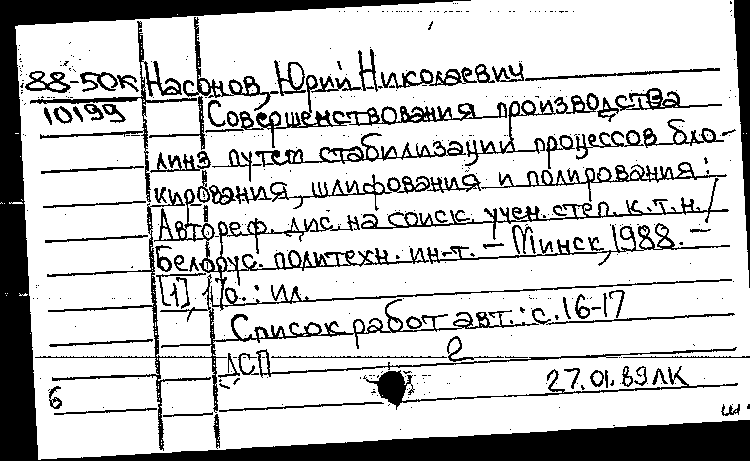 88-50К Насонов, Юрий Николаевич
10199 Совершенствования производства
линз путем стабилизации процессов бло-
кирования, шлифования и полирования:
Автореф. дис. на соиск. учен. степ. к.т.н./
Белорус. политехн. ин-т. – Минск, 1988. –
[1], 17с. : ил.
Список работ авт.: с. 16-17
ДСП
6 27.01.89 ЛК